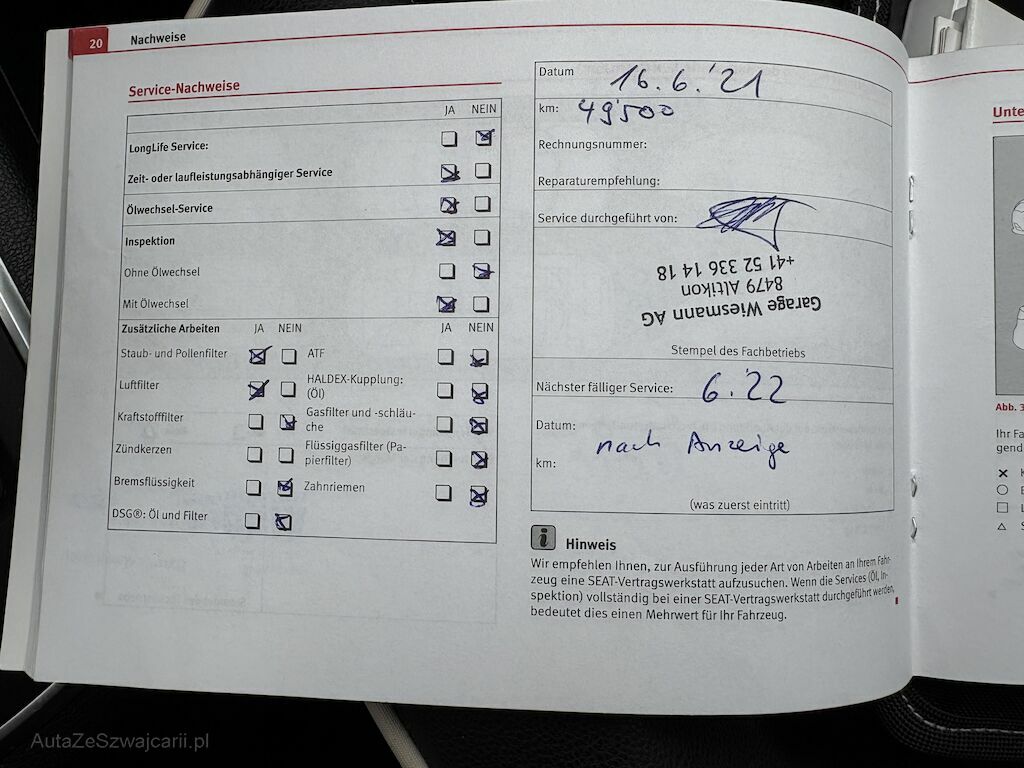 20 Nachweise
Service-Nachweise
JA NEIN
LongLife Service:
Zeit- oder laufleistungsabhängiger Service
Ölwechsel-Service
Inspektion
Ohne Ölwechsel
Mit Ölwechsel
Zusätzliche Arbeiten JA NEIN JA NEIN
Staub- und Pollenfilter ATF
Luftfilter HALDEX-Kupplung:
(Öl)
Kraftstofffilter Gasfilter und -schläu-
che
Zündkerzen Flüssiggasfilter (Pa-
pierfilter)
Bremsflüssigkeit Zahnriemen
DSG®: Öl und Filter
Datum 16.6.'21
km: 49'500
Rechnungsnummer:
Reparaturempfehlung:
Service durchgeführt von:
Garage Wiesmann AG
8479 Altikon
+41 52 336 14 18
Stempel des Fachbetriebs
Nächster fälliger Service: 6.'22
Datum:
nach Anzeige
km:
(was zuerst eintritt)
i Hinweis
Wir empfehlen Ihnen, zur Ausführung jeder Art von Arbeiten an Ihrem Fahr-
zeug eine SEAT-Vertragswerkstatt aufzusuchen. Wenn die Services (Öl, In-
spektion) vollständig bei einer SEAT-Vertragswerkstatt durchgeführt werden,
bedeutet dies einen Mehrwert für Ihr Fahrzeug.
Unte
Abb. 3
Ihr Fa
gend
AutaZeSzwajcarii.pl